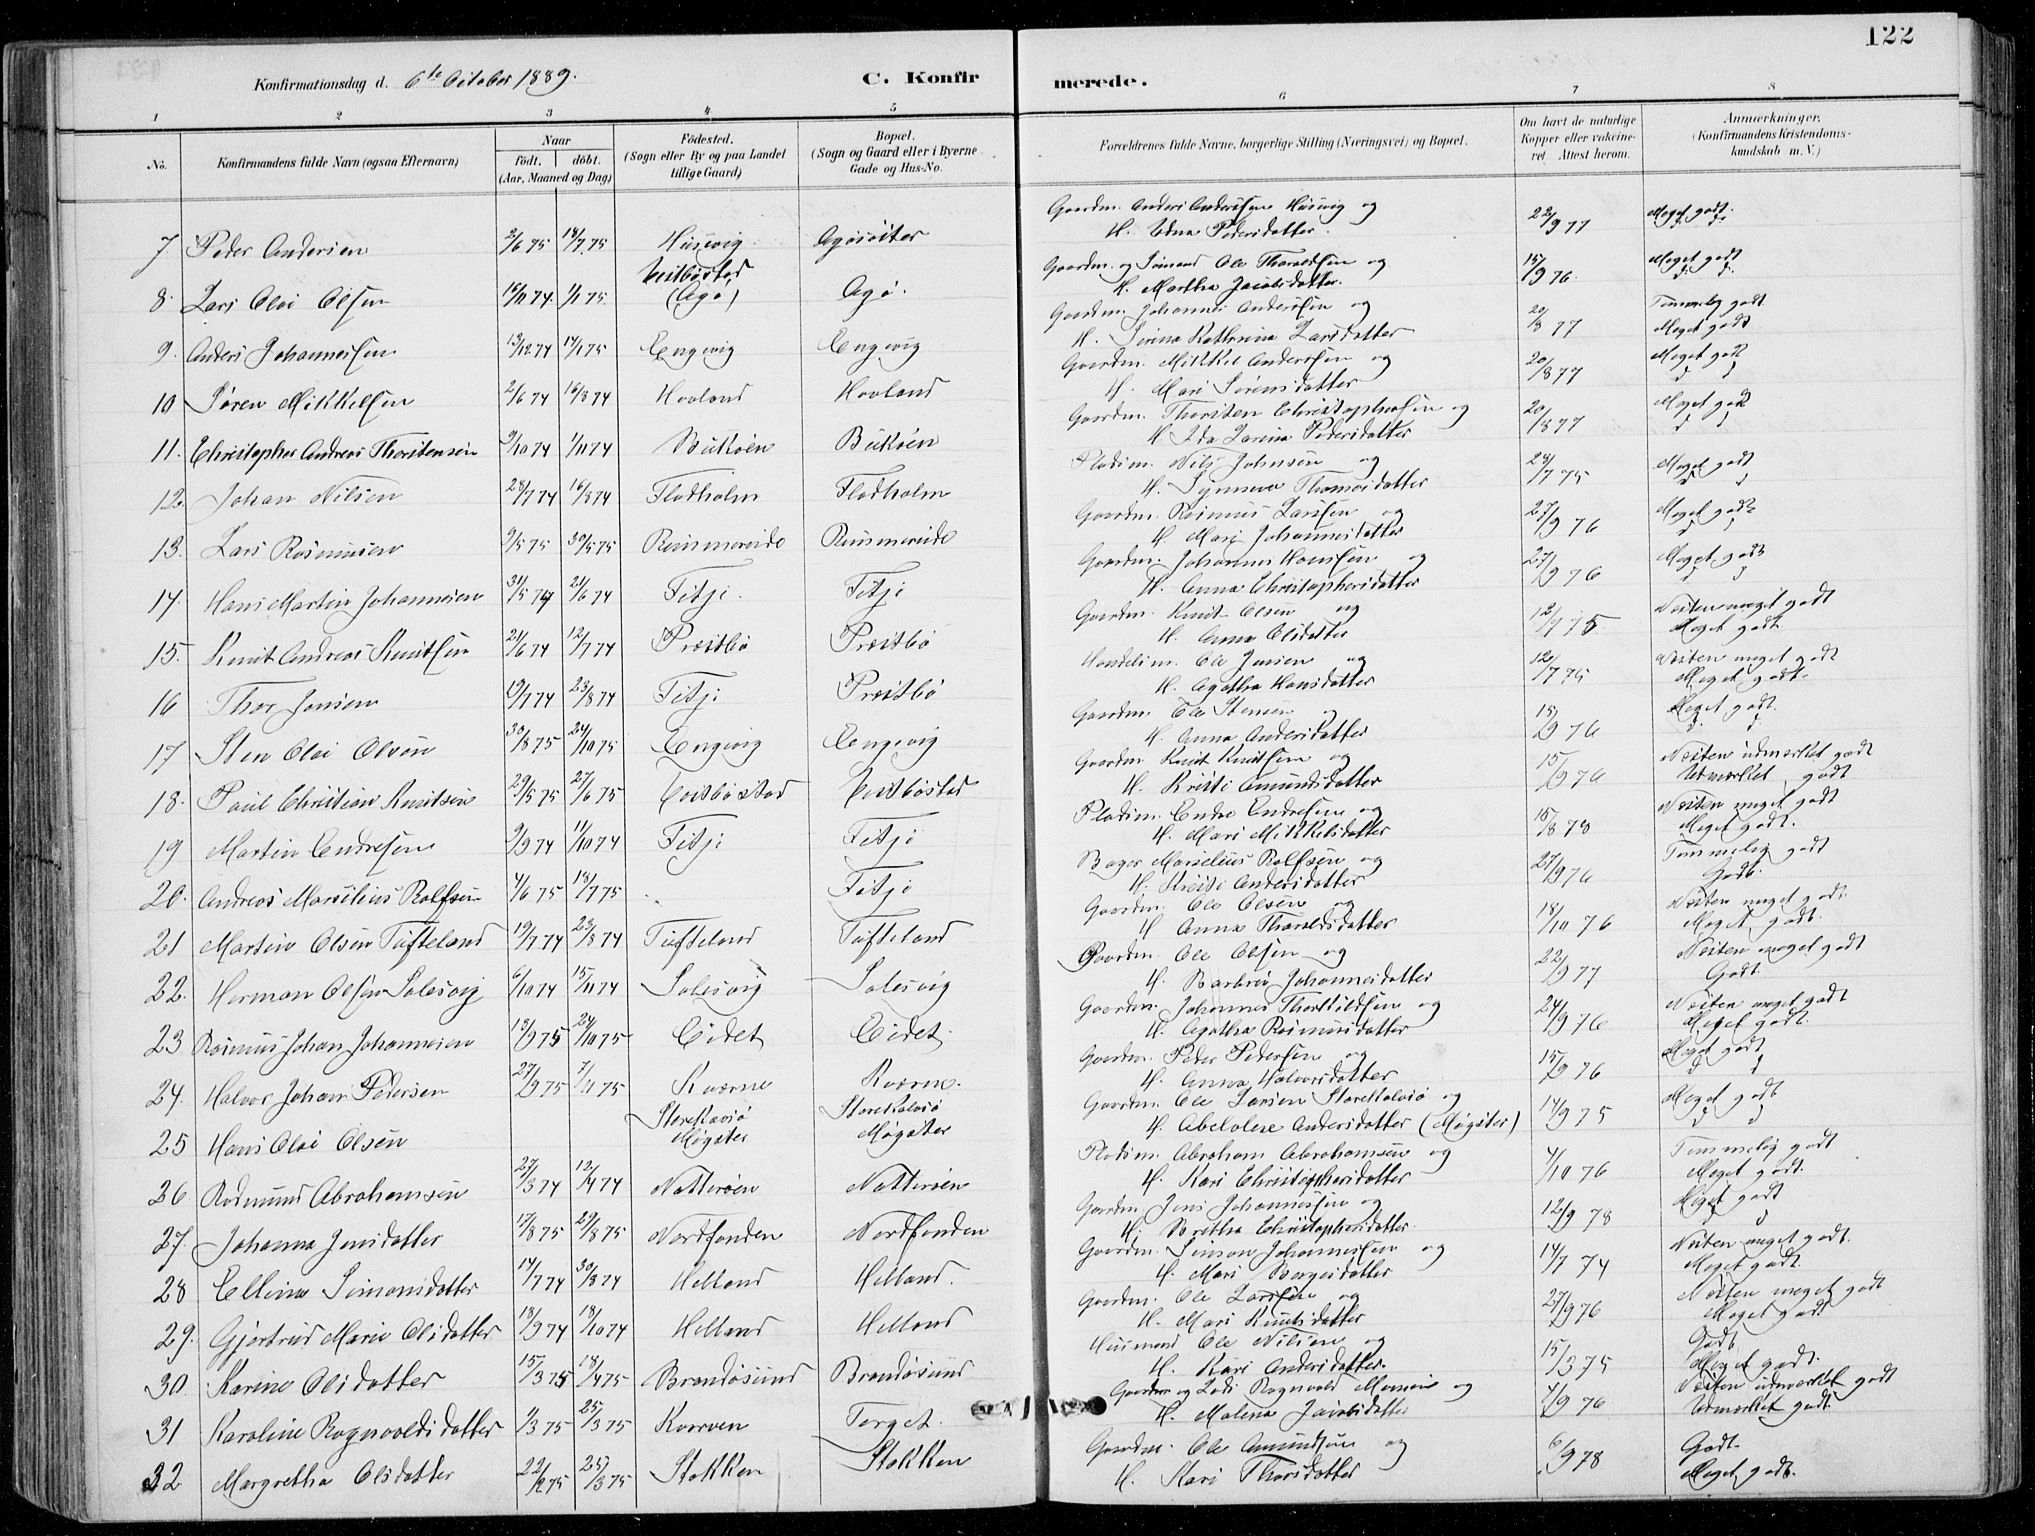 122
Konfirmationsdag d. 6te October 1889. C. Konfirmerede.
1 2 3 4 5 6 7 8
No. Konfirmandens fulde Navn (ogsaa Efternavn) Naar födt. döbt. (Aar, Maaned og Dag) Födested. (Sogn eller By og paa Landet tillige Gaard) Bopæl. (Sogn og Gaard eller i Byerne Gade og Hus-No. Forældrenes fulde Navne, borgerlige Stilling (Næringsvei) og Bopæl. Om havt de naturlige Kopper eller vakcineret. Attest herom. Anmærkninger. (Konfirmandens Kristendomskundskab m. V.)
7 Peder Andersen 2/6 75 18/7 75 Husevig Agösöiter Gaardm. Anders Andersen Husvig og H. Edna Pedersdatter. 22/9 77 Meget godt. d: d:
8. Lars Olai Olsen 15/11 74 1/1 75 Vestbøstad (Agø) Agø. Gaardm. og Lömand Ole Thoraldsen og H. Martha Jacobsdatter. 15/9 76 Meget godt d: d:
9. Anders Johannessen 13/12 74 17/1 75 Engevig Engevig Gaardm. Johannes Anderssen og H. Sirina Kathrina Larsdatter 20/8 77 Temmelig godt Meget godt
10 Søren Mikkelsen 2/6 74 16/8 74 Hovland Hovland Gaardm. Mikkel Anderssen og H. Mari Sørensdatter 20/8 77 Meget godt d d
11. Christopher Andreas Thorstensen 9/10 74 1/11 74 Bukøen Bukøen Gaardm. Thorsten Christophersen og H. Ida Larina Pedersdatter 20/8 77 Meget godt d d
12. Johan Nilsen 28/7 74 16/8 74 Flodholm Flodholm Pladsm. Nils Johnsen og H. Synneva Thomasdatter 28/7 75 Meget godt d d
13. Lars Rasmussen 9/5 75 30/5 75 Rimmereide Rimmereide Gaardm. Rasmus Larssen og H. Mari Johannesdatter 27/9 76 Meget godt d d
14. Hans Martin Johannesen 31/5 74 21/6 74 Fitje. Fitje Gaardm. Johannes Hanssen og H. Anna Christophersdatter 27/9 76 Meget godt d d
15. Knut Andreas Knutsen 21/6 74 12/7 74 Præstbø Præstbø Gaardm. Knut Olsen og H. Anna Olsdatter 12/7 75 Næsten meget godt Meget godt
16 Thor Jensen 19/7 74 23/8 74 Fitje Præstbø Handelsm. Ole Jensen og H. Agatha Hansdatter 12/7 75 Næsten meget godt Meget godt.
17 Sten Olai Olsen 30/8 75 24/10 75 Engevig Engevig Gaardm. Ole Stensen og H. Anna Andersdatter 15/9 76 Meget godt. d d
18. Paul Christian Knutsen 29/5 75 27/6 75 Vestbøstad Vestbøstad Gaardm. Knut Knutsen og H. Kristi Amundsdatter 15/9 76 Næsten udmerket godt Udmerket godt
19 Martin Endresen 9/9 74 11/10 74 Fitje Fitje Pladsm. Endre Endresen og H. Mari Mikkelsdatter 15/8 78 Næsten meget godt Meget godt.
20. Andreas Marselius Rolfsen 4/6 75 18/7 75 Fitje Bager Marselius Rolfsen og H. Kristi Andersdatter 27/9 76 Temmelig godt Godt.
21 Martin Olsen Tufteland 19/7 74 23/8 74 Tufteland Tufteland Gaardm. Ole Olsen og H Anna Tharaldsdatter 18/10 76 Næsten meget godt Meget godt.
22. Herman Olsen Salesvig 6/10 74 15/11 74 Salesvig Salesvig Gaardm. Ole Olsen og H. Barbru Johannesdatter 22/9 77 Næsten meget godt Godt.
23 Rasmus Johan Johannesen 15/9 75 24/10 75 Eidet Eidet. Gaardm. Johannes Thorkildsen og H. Agatha Rasmusdatter 24/9 76 Næsten meget godt Meget godt.
24. Halvor Johan Pedersen 27/9 75 7/11 75 Kværne Kværne. Gaardm. Peder Pedersen og H. Anna Halvorsdatter 15/9 76 Meget godt d d
25 Hans Olai Olsen StoreKalvsø Møgster StoreKalvsø Møgster Gaardm. Ole Larsen StoreKalvsø og H. Abelolese Andersdatter (Møgster) 14/9 75 Meget godt d d
26 Rodmund Abrahamsen 27/3 74 12/4 74 Natterøen Natterøen Pladsm. Abraham Abrahamsen og H. Kari Christophersdatter 4/10 76 Temmelig godt Meget godt.
27. Johanna Jensdatter 17/8 75 29/8 75 Nordfonden Nordfonden Gaardm Jens Johannessen og H. Bretha Christophersdatter. 12/9 78 Meget godt d d
28 Ellina Simonsdatter 14/7 74 30/8 74 Helland Helland. Gaardm. Simon Johannessen og H. Mari Børgesdatter 14/7 74 Næsten meget godt. Meget godt.
29. Gjertrud Marie Olsdatter 18/9 74 18/10 74 Helland Helland Gaardm. Ole Larssen og H. Mari Knutsdatter 27/9 76 Næsten meget godt Meget godt
30. Karine Olsdatter 15/3 75 18/4 75 Brandøsund Brandøsund Husmand Ole Nilsen og H. Kari Andersdatter. 15/3 75 Godt Meget godt.
31 Karoline Rognvaldsdatter 1/3 75 25/3 75 Korsven Torget. Gaardm og Lods Rognvald Monsen og H. Malena Jacobsdatter 4/9 76 Næsten udmerket godt Udmerket godt.
32. Margretha Olsdatter 22/2 75 25/3 75 Stokken Stokken Gaardm. Ole Amundsen og H. Kari Thorsdatter 6/9 78 Godt. Meget godt.